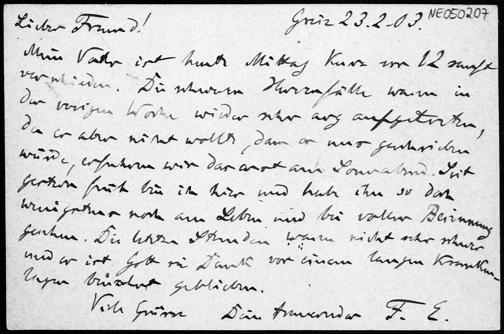 NE050207
Lieber Freund! Greiz 23.2.03.
Mein Vater ist heute Mittag kurz vor 12 sanft
verschieden. Die schweren Herzanfälle waren in
der vorigen Woche wieder sehr arg aufgetreten,
da er aber nicht wollte, dass er uns geschrieben
würde, erfuhren wir das erst am Sonnabend. Seit
gestern früh bin ich hier und hab ihn so doch
wenigstens noch am Leben und bei voller Besinnung
gesehen. Die letzten Stunden waren nicht sehr schwer
und er ist Gott sei Dank vor einem langen Kranken-
lager bewahrt geblieben.
Viele Grüsse Dein F. E.